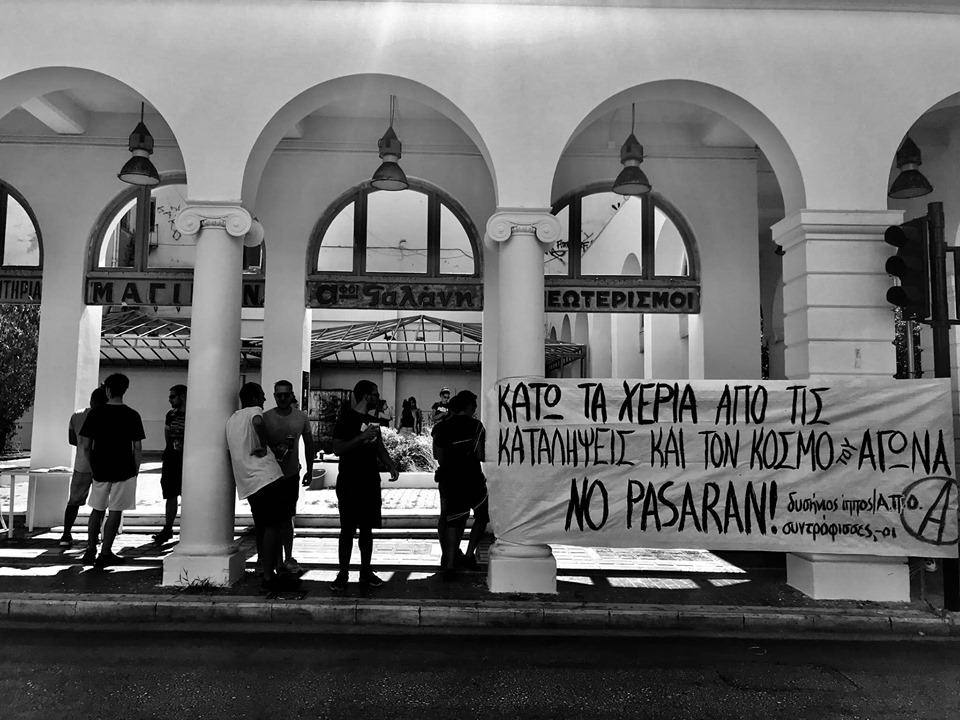 ΤΗΡΙΑ
ΜΑΓΙ
Αφοι Γαλάνη
ΕΩΤΕΡΙΣΜΟΙ
ΚΑΤΩ ΤΑ ΧΕΡΙΑ ΑΠΟ ΤΙΣ
ΚΑΤΑΛΗΨΕΙΣ ΚΑΙ ΤΟΝ ΚΟΣΜΟ του ΑΓΩΝΑ
NO PASARAN!
δυσήνιος ίππος/Α.Π.Ο.
συντρόφισσες,-οι
Α